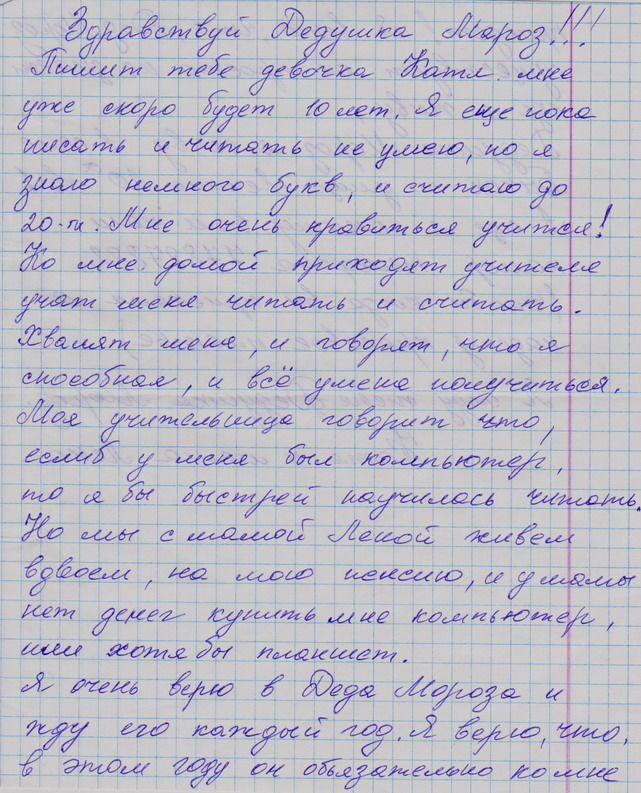 Здравствуй Дедушка Мароз!!!
Пишит тебе девочка Катя. мне
уже скоро будет 10 лет. Я еще пока
писать и читать не умею, но я
знаю немного букв, и считаю до
20-ти. Мне очень нравиться учится!
Ко мне домой приходят учителя
учат меня читать и считать.
Хвалят меня, и говорят, что я
способная, и всё умена получиться.
Моя учительница говорит что,
еслиб у меня был компьютер,
то я бы быстрей научилась читать.
Но мы с мамой Леной живем
вдвоем, на мою пенсию, и у мамы
нет денег купить мне компьютер,
или хотя бы планшет.
Я очень верю в Деда Мороза и
жду его каждый год. Я верю, что,
в этом году он обьязательно ко мне